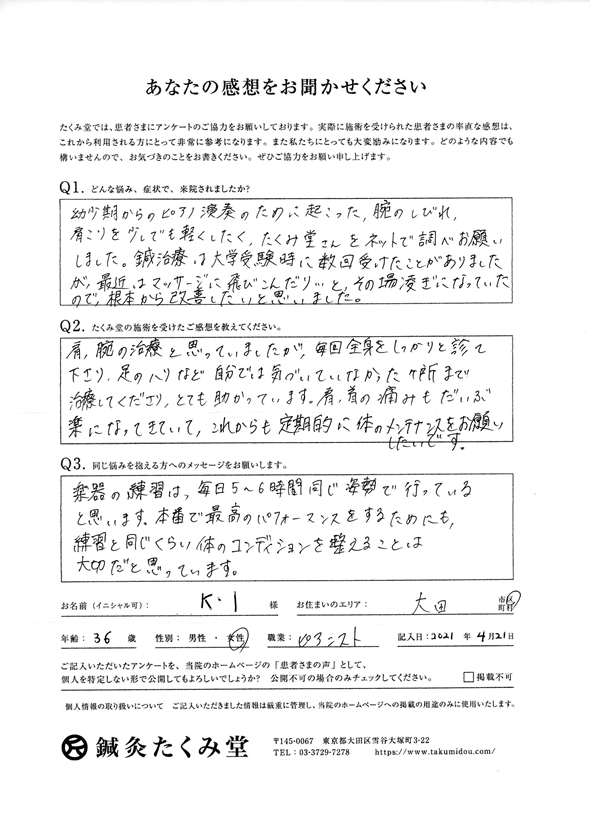 あなたの感想をお聞かせください
たくみ堂では、患者さまにアンケートのご協力をお願いしております。実際に施術を受けられた患者さまの率直な感想は、
これから利用される方にとって非常に参考になります。また私たちにとっても大変励みになります。どのような内容でも
構いませんので、お気づきのことをお書きください。ぜひご協力をお願い申し上げます。
Q1. どんな悩み、症状で、来院されましたか?
幼少期からのピアノ演奏のために起こった、腕のしびれ、
肩こりを少しでも軽くしたく、たくみ堂さんをネットで調べお願い
しました。鍼治療は大学受験時に数回受けたことがありました
が、最近はマッサージに飛びこんだり…と、その場凌ぎになっていた
ので、根本から改善したいと思いました。
Q2. たくみ堂の施術を受けたご感想を教えてください。
肩、腕の治療と思っていましたが、毎回全身をしっかりと診て
下さり、足のハリなど自分では気づいていなかったヶ所まで
治療してくださり、とても助かっています。肩、首の痛みもだいぶ
楽になってきていて、これからも定期的に体のメンテナンスをお願い
したいです。
Q3. 同じ悩みを抱える方へのメッセージをお願いします。
楽器の練習は、毎日5〜6時間同じ姿勢で行っている
と思います。本番で最高のパフォーマンスをするためにも、
練習と同じくらい体のコンディションを整えることは
大切だと思っています。
お名前(イニシャル可): K・I 様 お住まいのエリア: 大田 市区町村
年齢: 36 歳 性別: 男性 ・ 女性 職業: ピアニスト 記入日:2021 年 4月21日
ご記入いただいたアンケートを、当院のホームページの「患者さまの声」として、
個人を特定しない形で公開してもよろしいでしょうか? 公開不可の場合のみチェックしてください。 □掲載不可
個人情報の取り扱いについて ご記入いただきました情報は厳重に管理し、当院のホームページへの掲載の用途のみに使用いたします。
鍼灸たくみ堂
〒145-0067 東京都大田区雪谷大塚町3-22
TEL:03-3729-7278 https://www.takumidou.com/